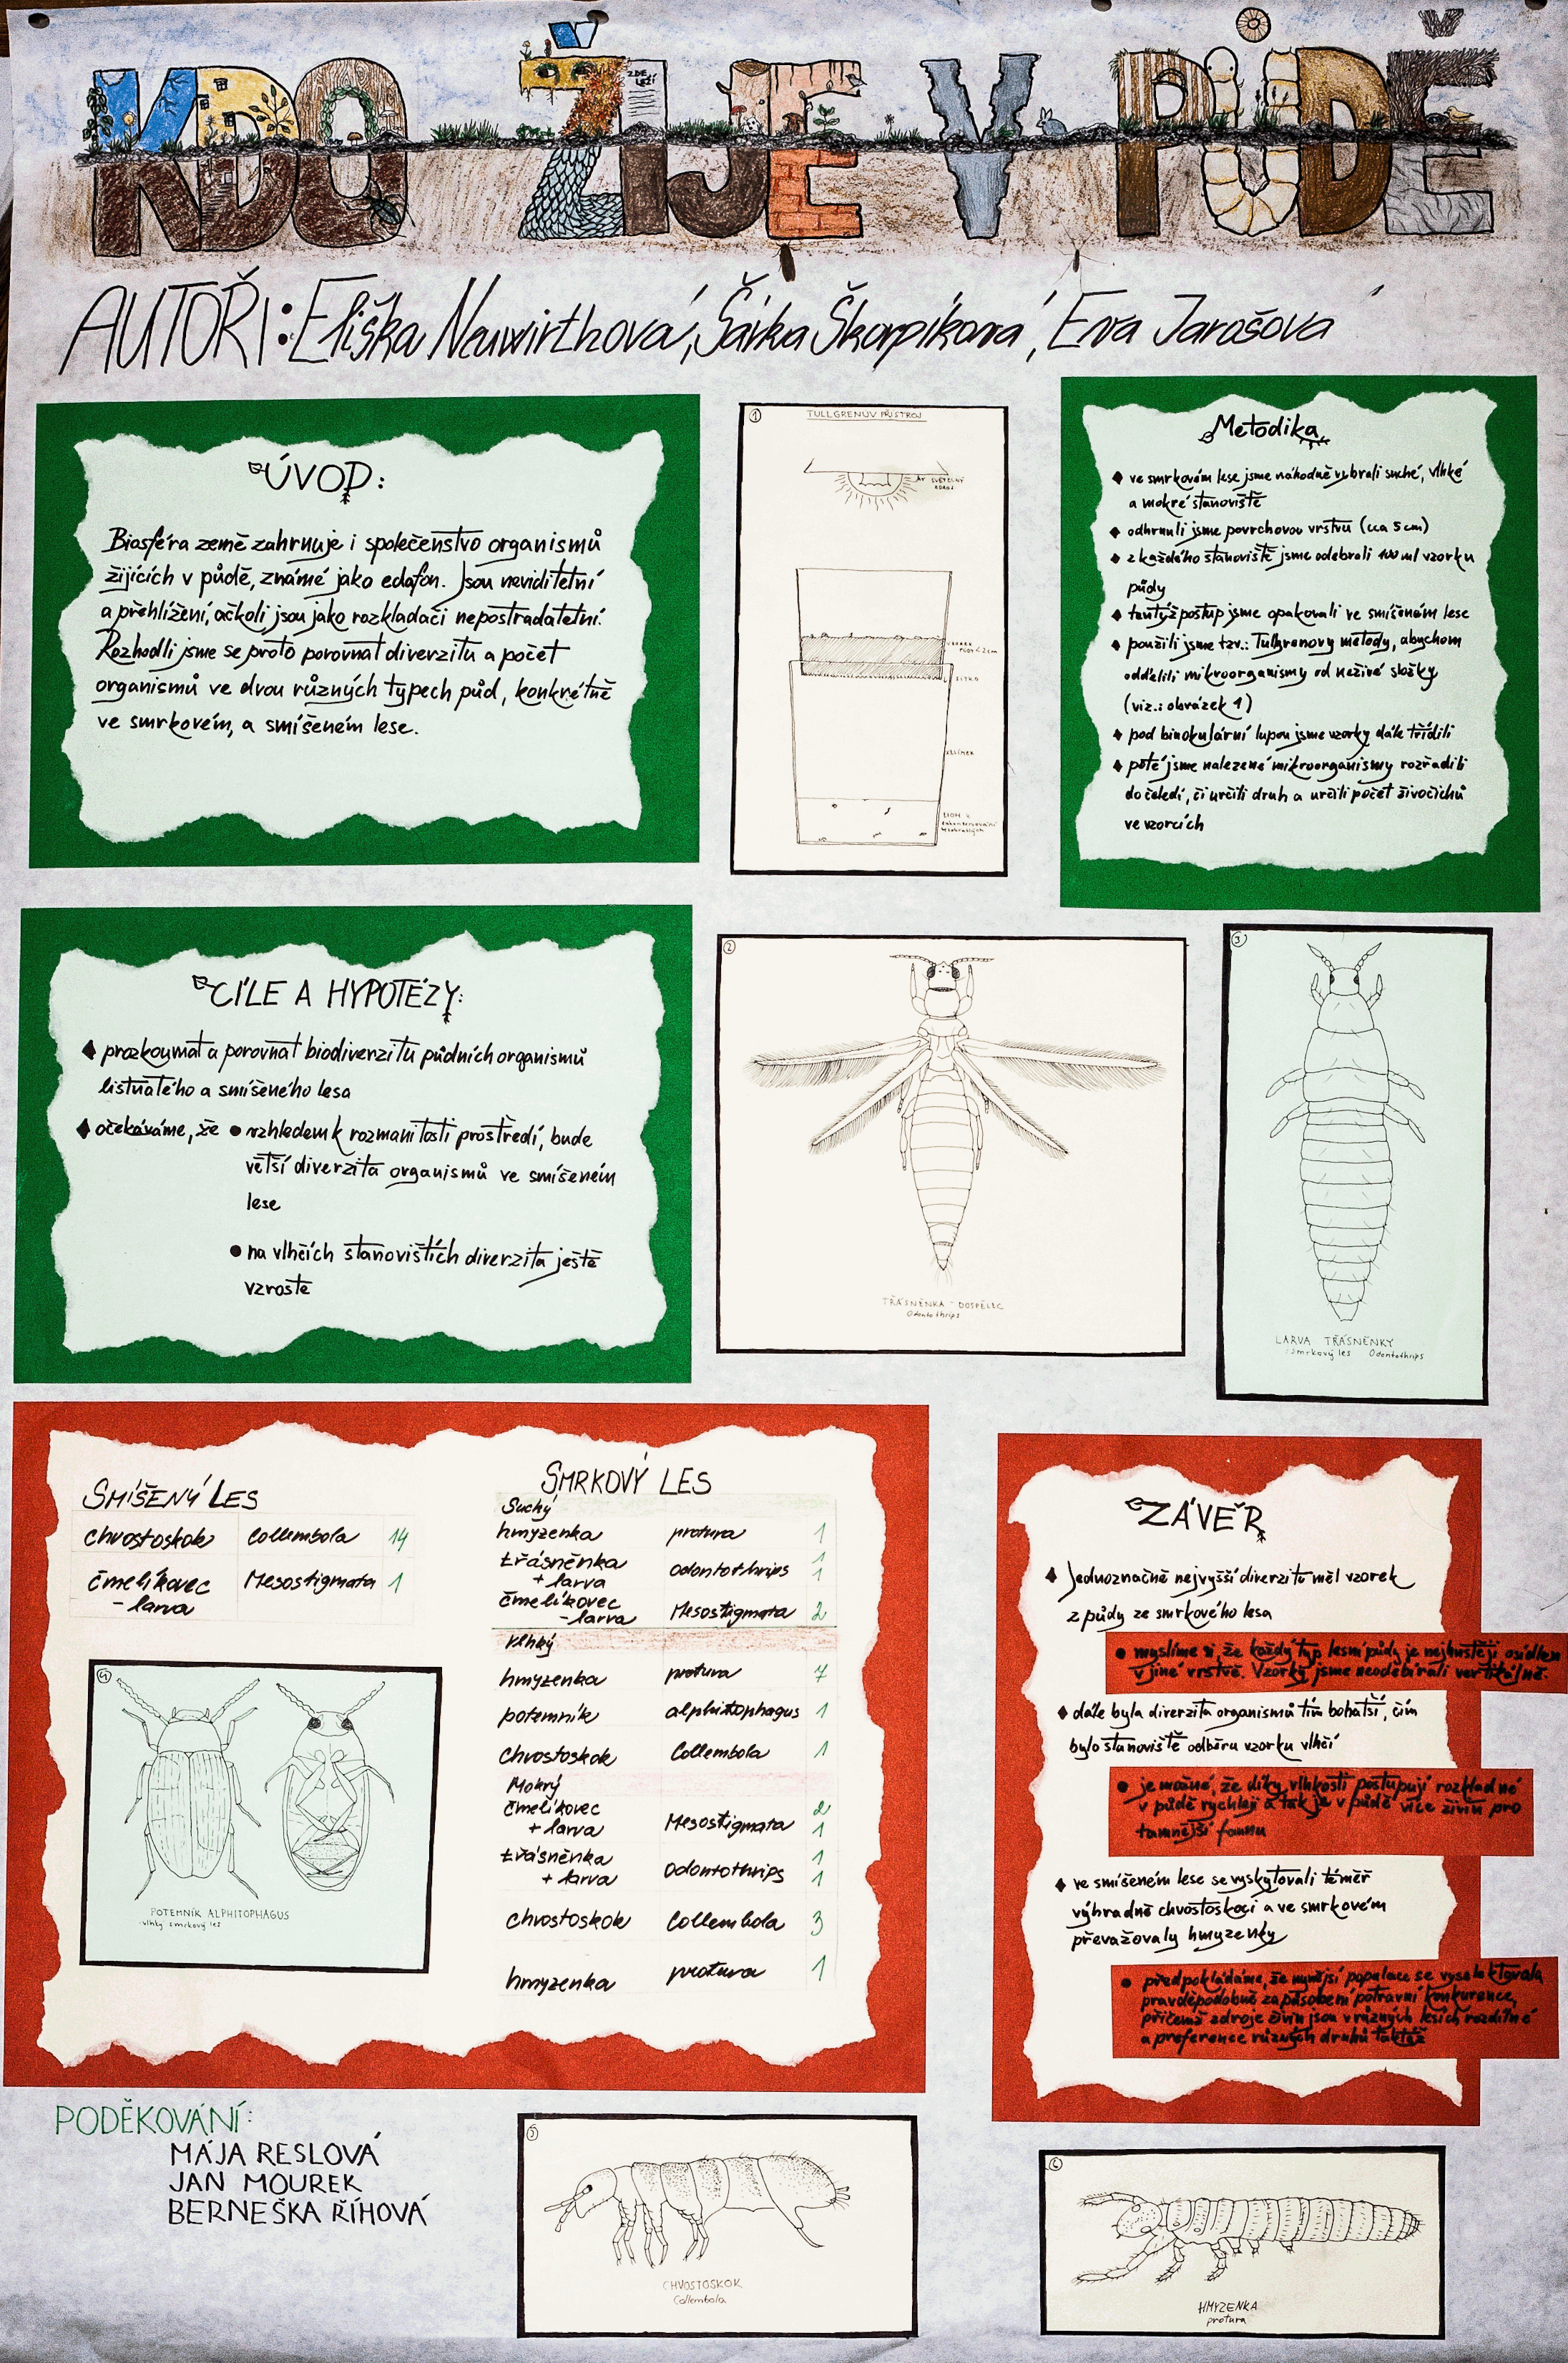 KDO ŽIJE V PŮDĚ
ZDE
LEŽÍ
AUTOŘI: Eliška Neuwirthová, Šárka Škorpíková, Eva Jarošová
ÚVOD:
Biosféra země zahrnuje i společenstvo organismů
žijících v půdě, známé jako edafon. Jsou neviditelní
a přehlížení, ačkoli jsou jako rozkladači nepostradatelní.
Rozhodli jsme se proto porovnat diverzitu a počet
organismů ve dvou různých typech půd, konkrétně
ve smrkovém, a smíšeném lese.
1
TULLGRENŮV PŘÍSTROJ
SVĚTELNÝ
ZDROJ
PŮDY < 2 cm
SÍTKO
KELÍMEK
LÍH K
zakonzervování
Metodika
ve smrkovém lese jsme náhodně vybrali suché, vlhké
a mokré stanoviště
odhrnuli jsme povrchovou vrstvu (cca 5 cm)
z každého stanoviště jsme odebrali 100 ml vzorku
půdy
tentýž postup jsme opakovali ve smíšeném lese
použili jsme tzv.: Tullgrenovy metody, abychom
oddělili mikroorganismy od neživé složky
(viz.: obrázek 1)
pod binokulární lupou jsme vzorky dále třídili
poté jsme nalezené mikroorganismy rozřadili
do čeledí, či určili druh a určili počet živočichů
ve vzorcích
CÍLE A HYPOTÉZY:
prozkoumat a porovnat biodiverzitu půdních organismů
listnatého a smíšeného lesa
očekáváme, že • vzhledem k rozmanitosti prostředí, bude
větší diverzita organismů ve smíšeném
lese
• na vlhčích stanovištích diverzita ještě
vzroste
2
TŘÁSNĚNKA - DOSPĚLEC
Odontothrips
3
LARVA TŘÁSNĚNKY
smrkový les Odontothrips
SMÍŠENÝ LES
chvostoskok Collembola 14
čmelíkovec Mesostigmata 1
- larva
4
POTEMNÍK ALPHITOPHAGUS
vlhký smrkový les
SMRKOVÝ LES
Suchý
hmyzenka protura 1
třásněnka odontothrips 1
+ larva 1
čmelíkovec
- larva Mesostigmata 2
Vlhký
hmyzenka protura 7
potemník alphitophagus 1
chvostoskok Collembola 1
Mokrý
čmelíkovec 2
+ larva Mesostigmata 1
třásněnka 1
+ larva Odontothrips 1
chvostoskok Collembola 3
hmyzenka protura 1
ZÁVĚR
Jednoznačně nejvyšší diverzitu měl vzorek
z půdy ze smrkového lesa
• myslíme si, že každý typ lesní půdy je nejhustěji osídlen
v jiné vrstvě. Vzorky jsme neodebírali vertikálně.
dále byla diverzita organismů tím bohatší, čím
bylo stanoviště odběru vzorku vlhčí
• je možné, že díky vlhkosti postupují rozkladné
v půdě rychleji a tak je v půdě více živin pro
tamnější faunu
ve smíšeném lese se vyskytovali téměř
výhradně chvostoskoci a ve smrkovém
převažovaly hmyzenky
• předpokládáme, že nynější populace se vyselektovala
pravděpodobně za působení potravní konkurence,
přičemž zdroje živin jsou v různých lesích rozdílné
a preference různých druhů taktéž
PODĚKOVÁNÍ:
MÁJA RESLOVÁ
JAN MOUREK
BERNEŠKA ŘÍHOVÁ
5
CHVOSTOSKOK
Collembola
6
HMYZENKA
protura